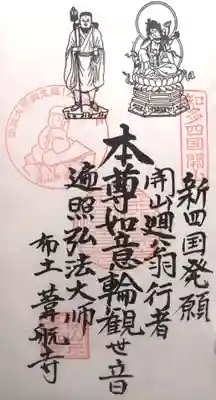 知多四国開山
新四国発願
開山廻翁行者
本尊如意輪観世音
遍照弘法大師
布土 葦航寺